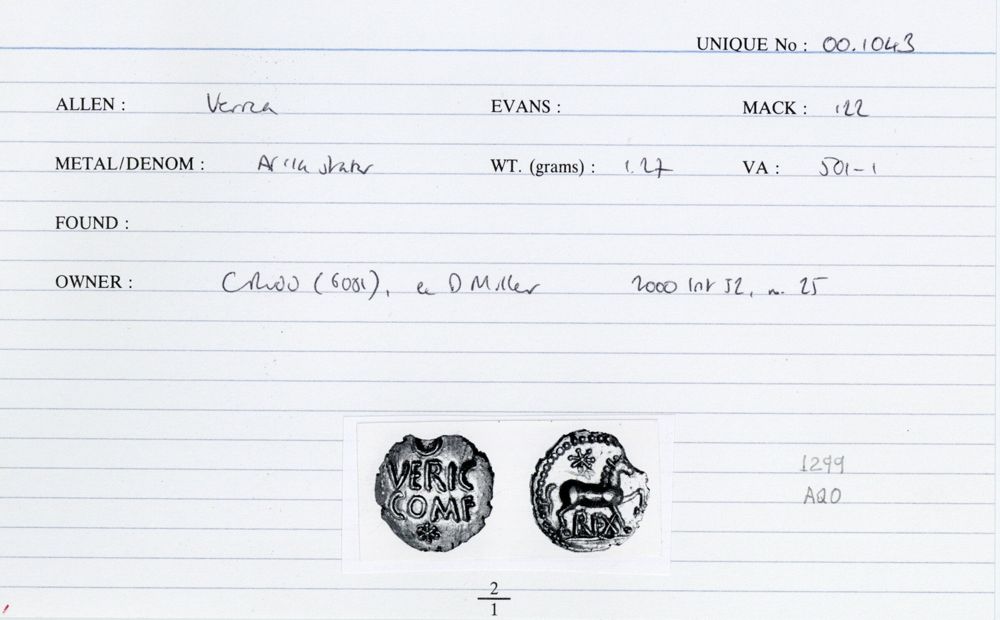 UNIQUE No : 00.1043
ALLEN : Verica EVANS : MACK : 122
METAL/DENOM : stater WT. (grams) : 1.27 VA : 501-1
FOUND :
OWNER : (6001), D Miller 2000 52, 25
VERIC
COMF
REX
1299
AQO
2
1